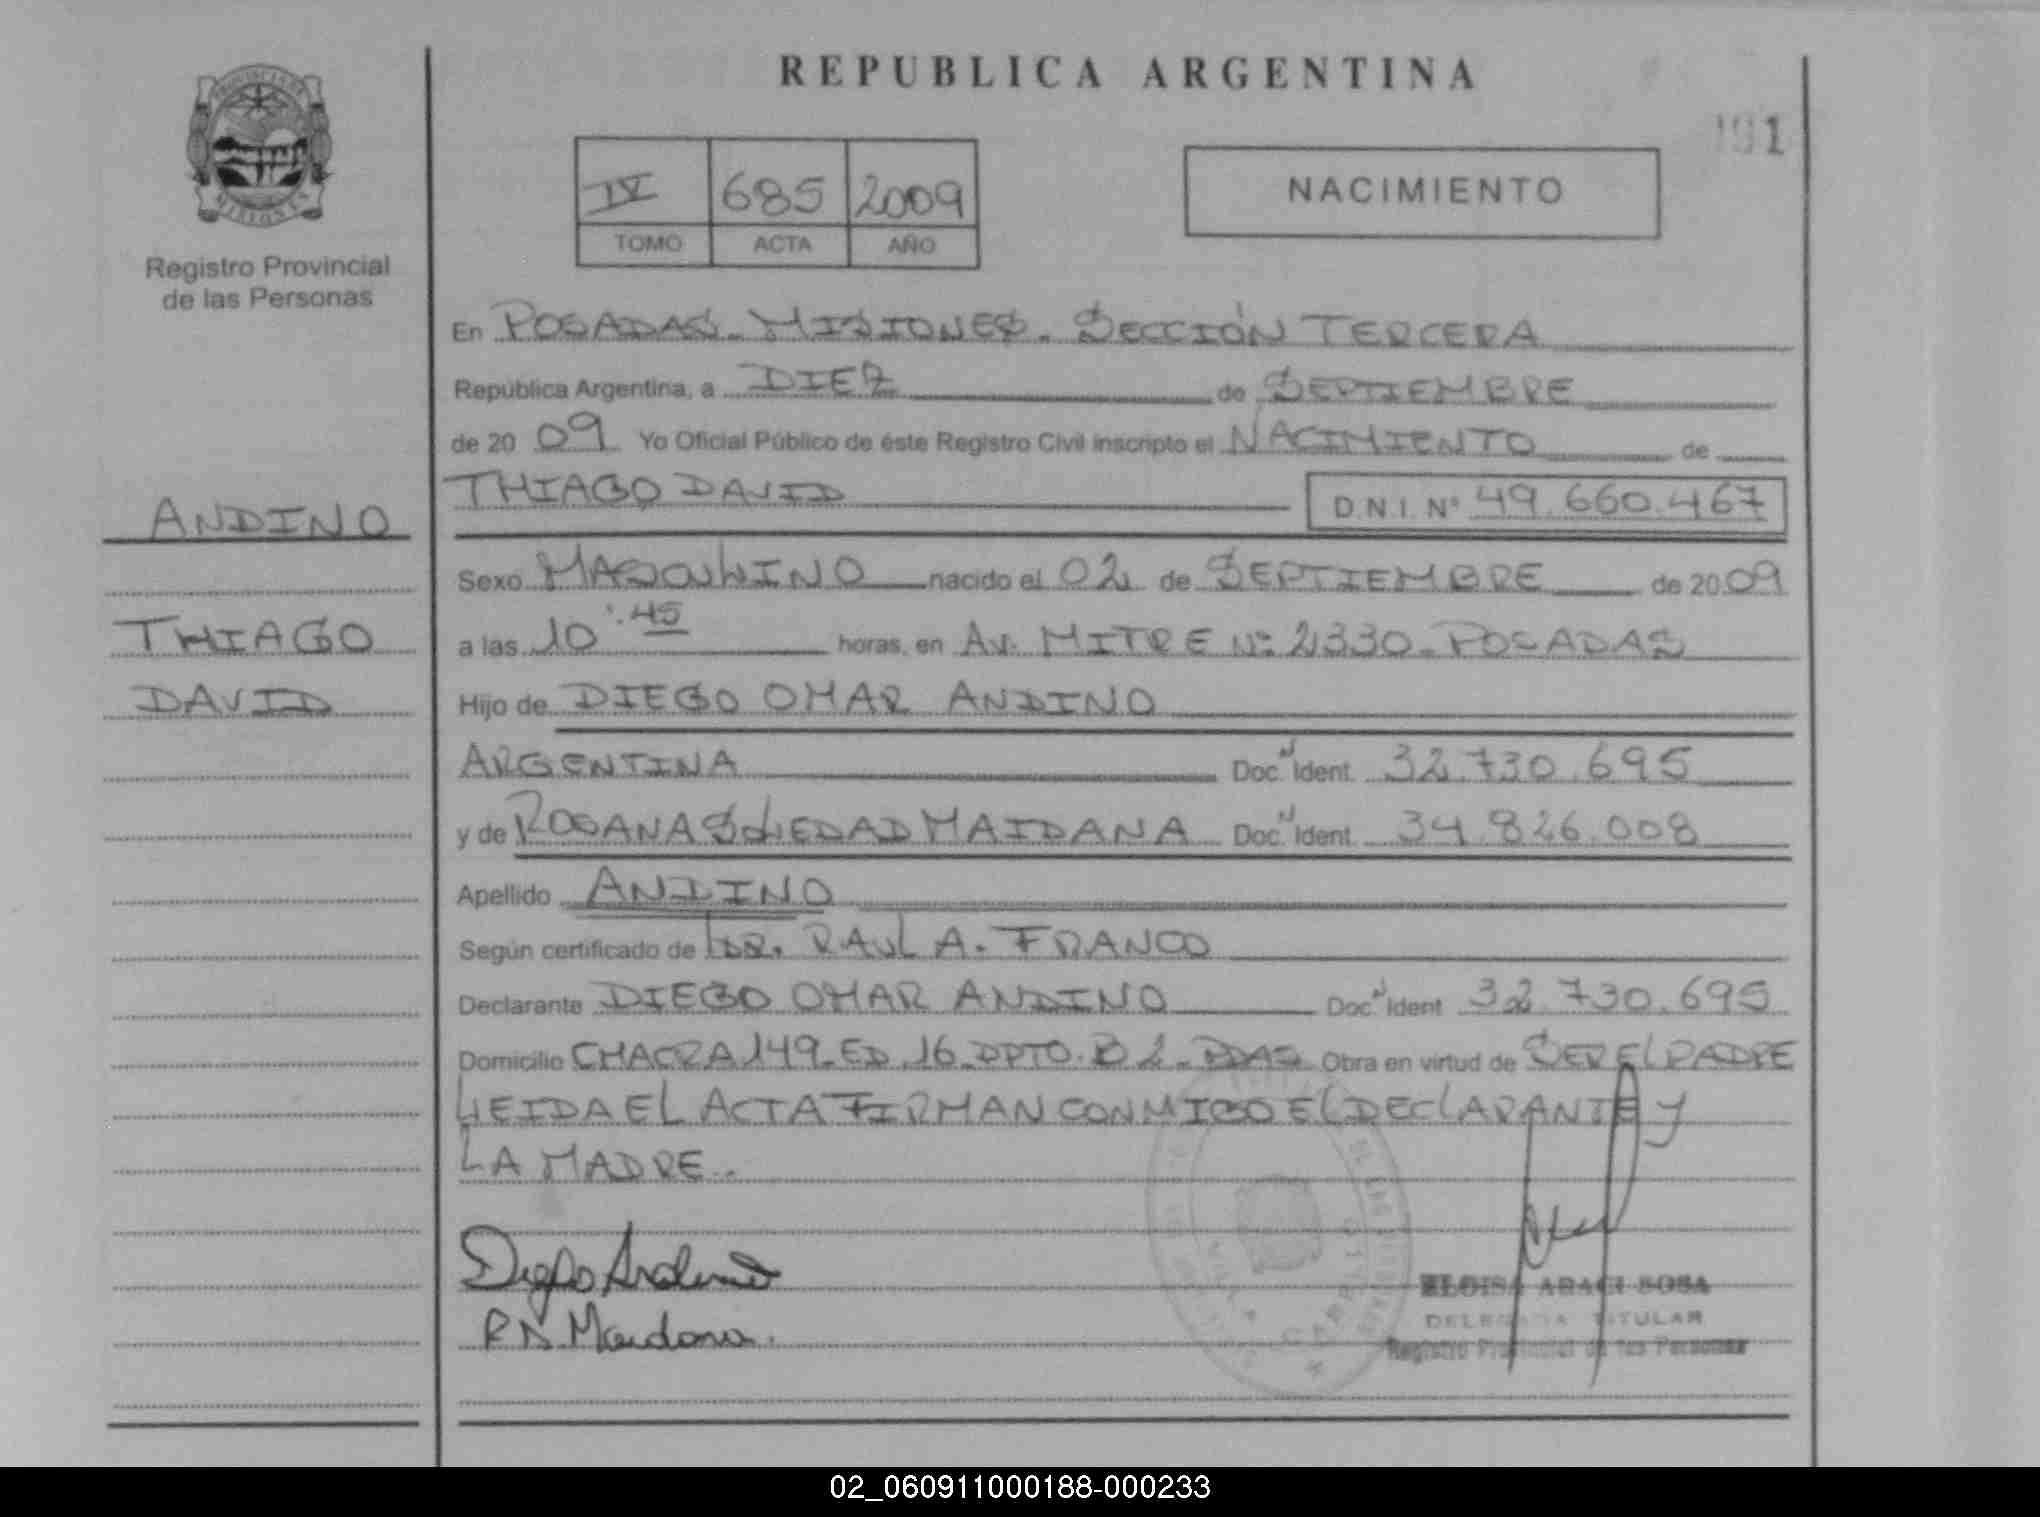 REPUBLICA ARGENTINA
191
PROVINCIA DE
MISIONES
Registro Provincial
de las Personas
IV 685 2009
TOMO ACTA AÑO
NACIMIENTO
En POSADAS - MISIONES. SECCIÓN TERCERA
República Argentina, a DIEZ de SEPTIEMBRE
de 20 09 Yo Oficial Público de éste Registro Civil inscripto el NACIMIENTO de
THIAGO DAVID D.N.I. Nº 49.660.467
ANDINO
THIAGO
DAVID
Sexo MASCULINO nacido el 02 de SEPTIEMBRE de 20 09
a las 10:45 horas, en AV. MITRE Nº 2330 - POSADAS
Hijo de DIEGO OMAR ANDINO
ARGENTINA Doc. Ident. 32.730.695
y de ROSANA SOLEDAD MAIDANA Doc. Ident. 34.826.008
Apellido ANDINO
Según certificado de DR. RAUL A. FRANCO
Declarante DIEGO OMAR ANDINO Doc. Ident. 32.730.695
Domicilio CHACRA 149 - ED. 16 - DPTO. B 2 - PDAS Obra en virtud de SER EL PADRE
LEIDA EL ACTA FIRMAN CONMIGO EL DECLARANTE Y
LA MADRE.
Diego Andino
R S. Maidana.
ELOISA ARACI SOSA
DELEGADA TITULAR
Registro Provincial de las Personas
02_060911000188-000233